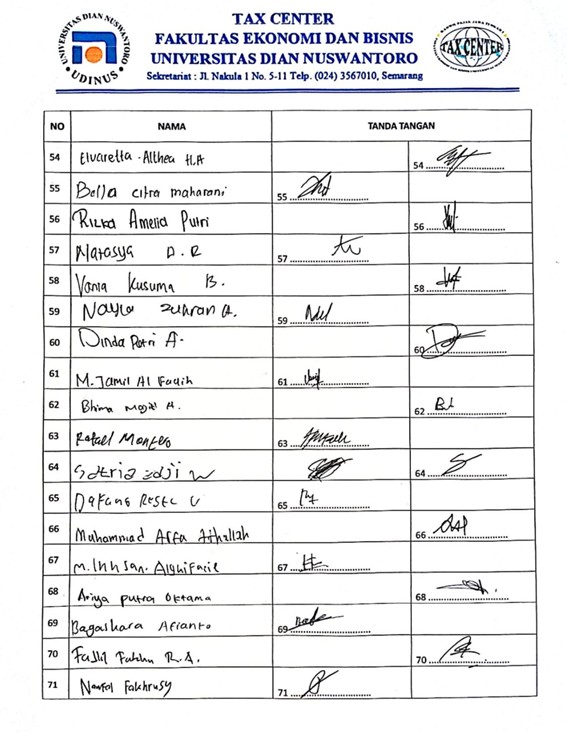 UNIVERSITAS DIAN NUSWANTORO
UDINUS
TAX CENTER
FAKULTAS EKONOMI DAN BISNIS
UNIVERSITAS DIAN NUSWANTORO
Sekretariat : Jl. Nakula 1 No. 5-11 Telp. (024) 3567010, Semarang
TAX CENTER
NO NAMA TANDA TANGAN
54 Elvaretta Althea H.A 54
55 Bella citra maharani 55
56 Rizka Amelia Putri 56
57 Natasya D. R 57
58 Vania Kusuma B. 58
59 Nayla Zahran A. 59
60 Dinda Putri A. 60
61 M. Jamil Al Faqih 61
62 Bhima Majid A. 62
63 Rafael Montero 63
64 Satria Edji W 64
65 Dafans 65
66 Muhammad Affa Athallah 66
67 M. Ihhsan. Alghifarie 67
68 Ariya putra Oktama 68
69 Bagaskara Afianto 69
70 R.A. 70
71 Naufal Fakhrusy 71